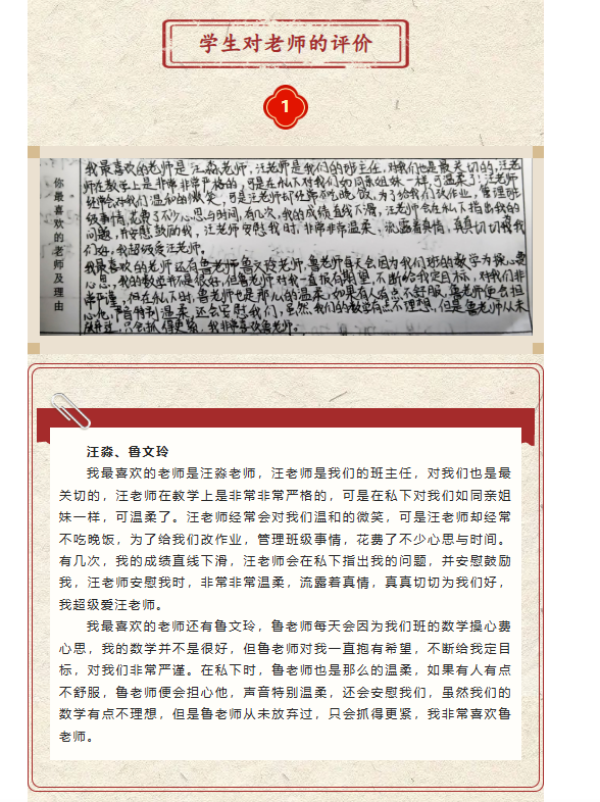 学生对老师的评价
1
你最喜欢的老师及理由
我最喜欢的老师是汪淼老师，汪老师是我们的班主任，对我们也是最关切的，汪老
师在教学上是非常非常严格的，可是在私下对我们如同亲姐妹一样，可温柔了。汪老师
经常会对我们温和的微笑，可是汪老师却经常不吃晚饭，为了给我们改作业，管理班
级事情，花费了不少心思与时间，有几次，我的成绩直线下滑，汪老师会在私下指出我的
问题，并安慰鼓励我，汪老师安慰我时，非常非常温柔，流露着真情，真真切切为我
们好，我超级爱汪老师。
我最喜欢的老师还有鲁老师鲁文玲老师，鲁老师每天会因为我们班的数学为操心费
心思，我的数学并不是很好，但鲁老师对我一直抱有期望，不断给我定目标，对我们非
常严谨，但在私下时，鲁老师也是那么的温柔，如果有人有点不舒服，鲁老师便会担
心他，声音特别温柔，还会安慰我们，虽然我们的数学有点不理想，但是鲁老师从未
放弃过，只会抓得更紧，我非常喜欢鲁老师。
汪淼、鲁文玲
我最喜欢的老师是汪淼老师，汪老师是我们的班主任，对我们也是最
关切的，汪老师在教学上是非常非常严格的，可是在私下对我们如同亲姐
妹一样，可温柔了。汪老师经常会对我们温和的微笑，可是汪老师却经常
不吃晚饭，为了给我们改作业，管理班级事情，花费了不少心思与时间。
有几次，我的成绩直线下滑，汪老师会在私下指出我的问题，并安慰鼓励
我，汪老师安慰我时，非常非常温柔，流露着真情，真真切切为我们好，
我超级爱汪老师。
我最喜欢的老师还有鲁文玲，鲁老师每天会因为我们班的数学操心费
心思，我的数学并不是很好，但鲁老师对我一直抱有希望，不断给我定目
标，对我们非常严谨。在私下时，鲁老师也是那么的温柔，如果有人有点
不舒服，鲁老师便会担心他，声音特别温柔，还会安慰我们，虽然我们的
数学有点不理想，但是鲁老师从未放弃过，只会抓得更紧，我非常喜欢鲁
老师。